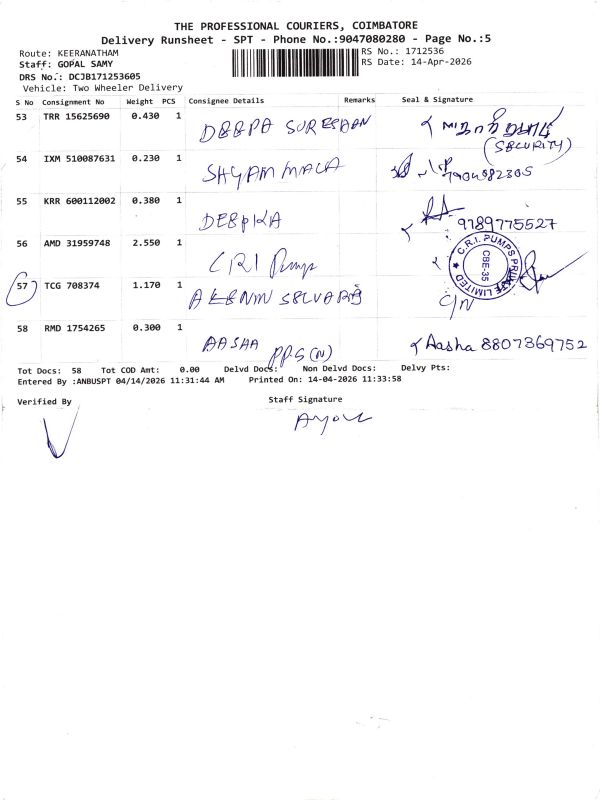 THE PROFESSIONAL COURIERS, COIMBATORE
Delivery Runsheet - SPT - Phone No.:9047080280 - Page No.:5
Route: KEERANATHAM
RS No.: 1712536
Staff: GOPAL SAMY
RS Date: 14-Apr-2026
DRS No.: DCJB171253605
Vehicle: Two Wheeler Delivery
S No Consignment No Weight PCS Consignee Details Remarks Seal & Signature
53 TRR 15625690 0.430 1
(SECURITY)
54 IXM 510087631 0.230 1 SHYAM MALA
55 KRR 600112002 0.380 1 DEEPIKA
9789775527
56 AMD 31959748 2.550 1 CRI Pumps
C.R.I. PUMPS PRIVATE LIMITED
CBE-35
57 TCG 708374 1.170 1
C/N
58 RMD 1754265 0.300 1 AASHA Aasha 8807369752
Tot Docs: 58 Tot COD Amt: 0.00 Delvd Docs: Non Delvd Docs: Delvy Pts:
Entered By :ANBUSPT 04/14/2026 11:31:44 AM Printed On: 14-04-2026 11:33:58
Verified By Staff Signature